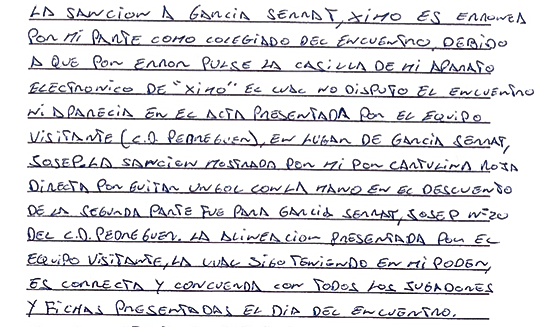 LA SANCION A GARCIA SERRAT, XIMO ES ERRONEA
POR MI PARTE COMO COLEGIADO DEL ENCUENTRO, DEBIDO
A QUE POR ERROR PULSE LA CASILLA DE MI APARATO
ELECTRONICO DE "XIMO" EL CUAL NO DISPUTO EL ENCUENTRO
NI APARECIA EN EL ACTA PRESENTADA POR EL EQUIPO
VISITANTE (C.D. PEDREGUER), EN LUGAR DE GARCIA SERRAT,
JOSEP. LA SANCION MOSTRADA POR MI POR CARTULINA ROJA
DIRECTA POR EVITAR UN GOL CON LA MANO EN EL DESCUENTO
DE LA SEGUNDA PARTE FUE PARA GARCIA SERRAT, JOSEP Nº20
DEL C.D. PEDREGUER. LA ALINEACION PRESENTADA POR EL
EQUIPO VISITANTE, LA CUAL SIGO TENIENDO EN MI PODER,
ES CORRECTA Y CONCUERDA CON TODOS LOS JUGADORES
Y FICHAS PRESENTADAS EL DIA DEL ENCUENTRO.